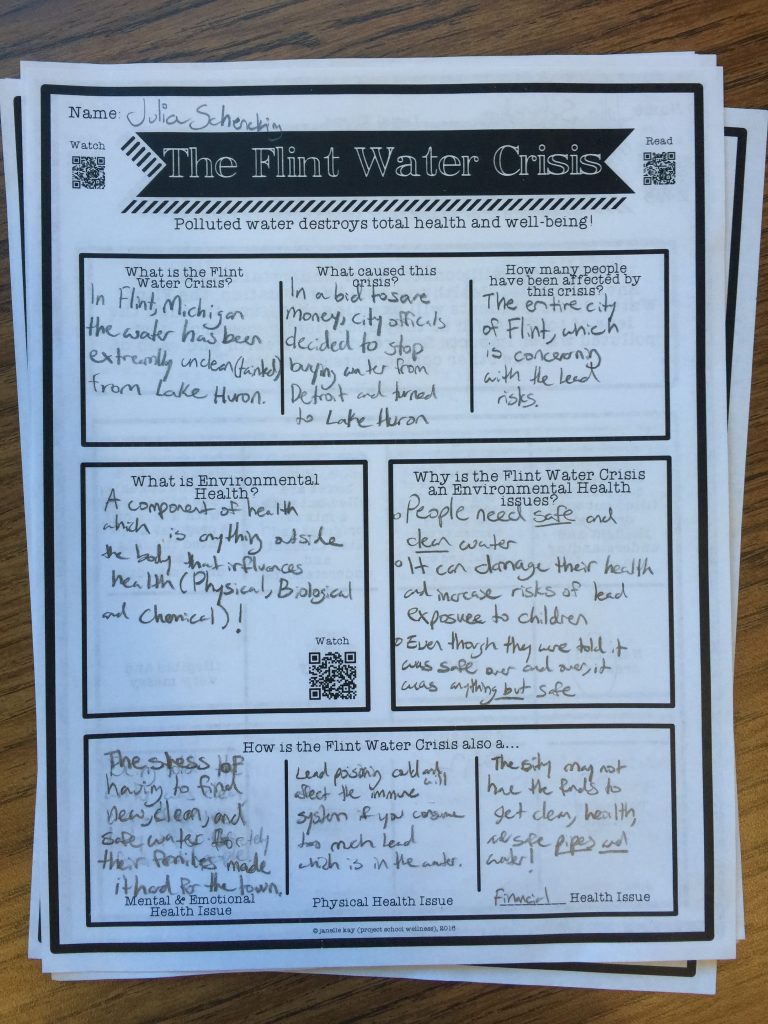 Name: Julia
Watch
Read
The Flint Water Crisis
Polluted water destroys total health and well-being!
What is the Flint
Water Crisis?
In Flint, Michigan
the water has been
extreamlly unclean (tainted)
from Lake Huron.
What caused this
crisis?
In a bid to save
money, city officals
decided to stop
buying water from
Detroit and turned
to Lake Huron
How many people
have been affected by
this crisis?
The entire city
of Flint, which
is concerning
with the lead
risks.
What is Environmental
Health?
A component of health
which is anything outside
the body that influences
health (Physical, Biological
and Chemical)!
Watch
Why is the Flint Water Crisis
an Environmental Health
issues?
People need safe and
clean water
It can damage their health
and increase risks of lead
exposure to children
Even though they were told it
was safe over and over, it
was anything but safe
How is the Flint Water Crisis also a...
The stress of
having to find
new, clean, and
safe water for
their families made
it hard for the town.
Mental & Emotional
Health Issue
Lead poisoning could and will
affect the immune
system if you consume
too much lead
which is in the water.
Physical Health Issue
The city may not
have the funds to
get clean, health,
safe pipes and
water!
Financial Health Issue
© janelle kay (project school wellness), 2016